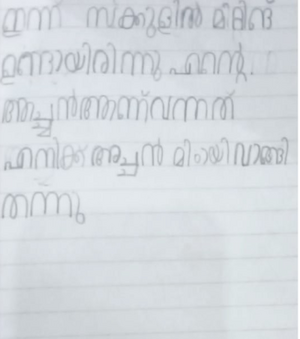 ഇന്ന് സ്ക്കുളിൽ മിറ്റിങ്
ഉണ്ടായിരിന്നു എന്റെ.
അച്ചൻആണ്വന്നത്
എനിക്ക് അച്ചൻ മിഠായി വാങ്ങി
തന്നു